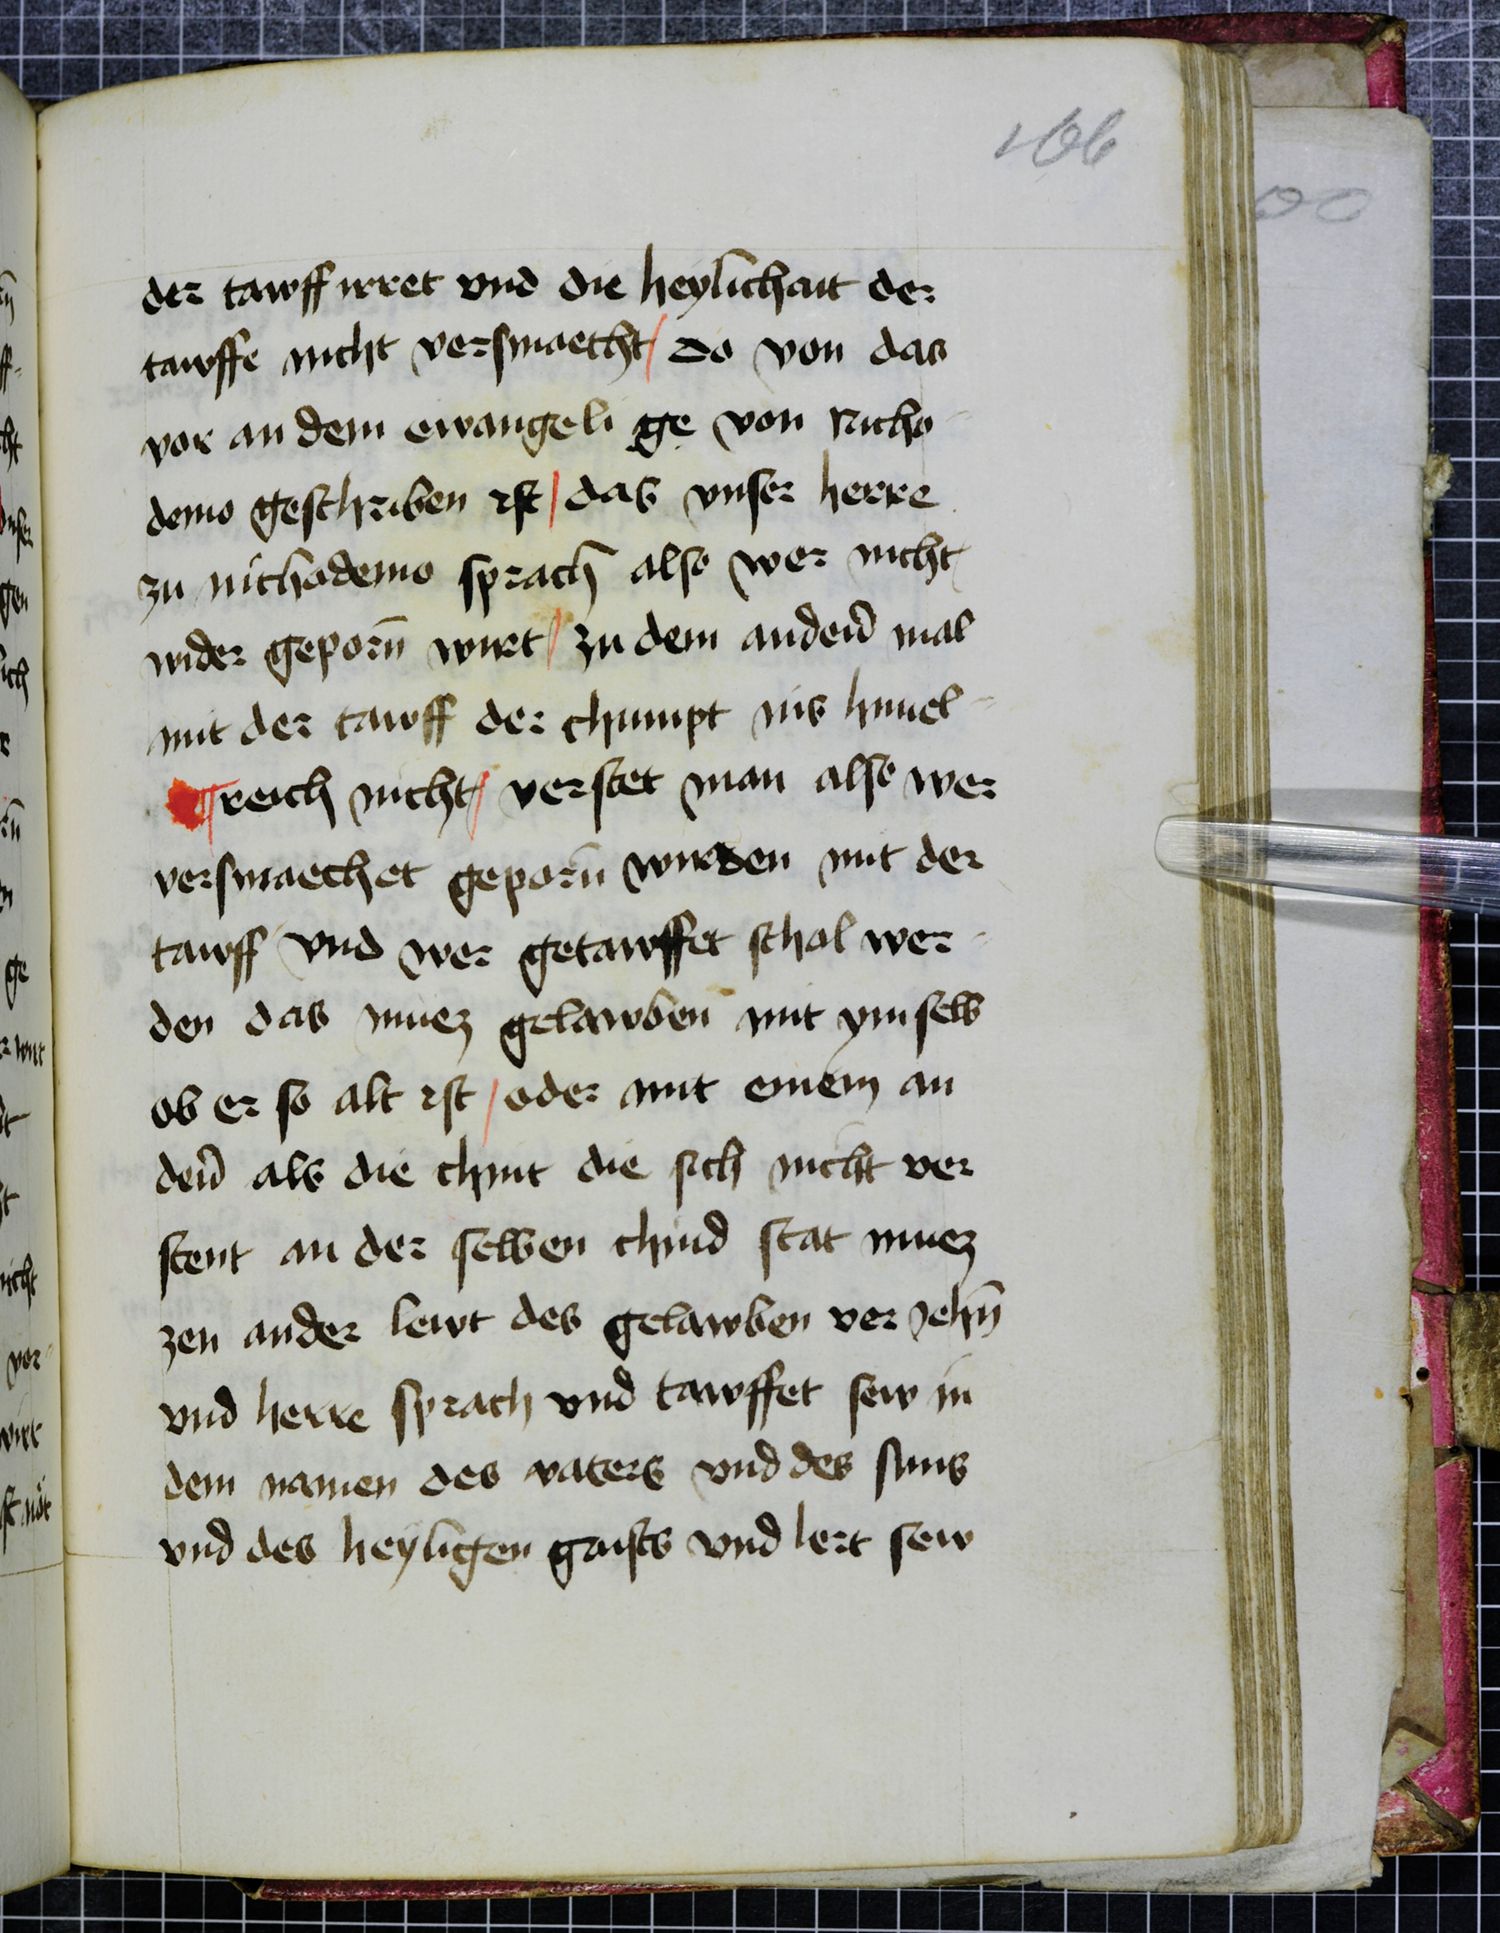 166
der tawff irret vnd die heylichait der
tawffe nicht versmaecht / do von das
vor an dem ewangeli ge von Nicho-
demo geschriben ist / das vnser herre
zu nichodemo sprach also wer nicht
wider geporn̄ wirt / zu dem anderñ mal
mit der tawff der chumpt ins himel-
reich nicht / verstet man also wer
versmaechet geporn̄ wurden mit der
tawff vnd wer getawffet schol wer-
den das muez gelawben mit ym selb
ob er so alt ist / oder mit einem an
derñ als die chint die sich nicht ver
stent an der selben chind stat muez
zen ander lewt des gelawben veriehn̄
vnd herre sprach vnd tawffet sew in
dem namen des vaters vnd des suns
vnd des heyligen gaists vnd lert sew